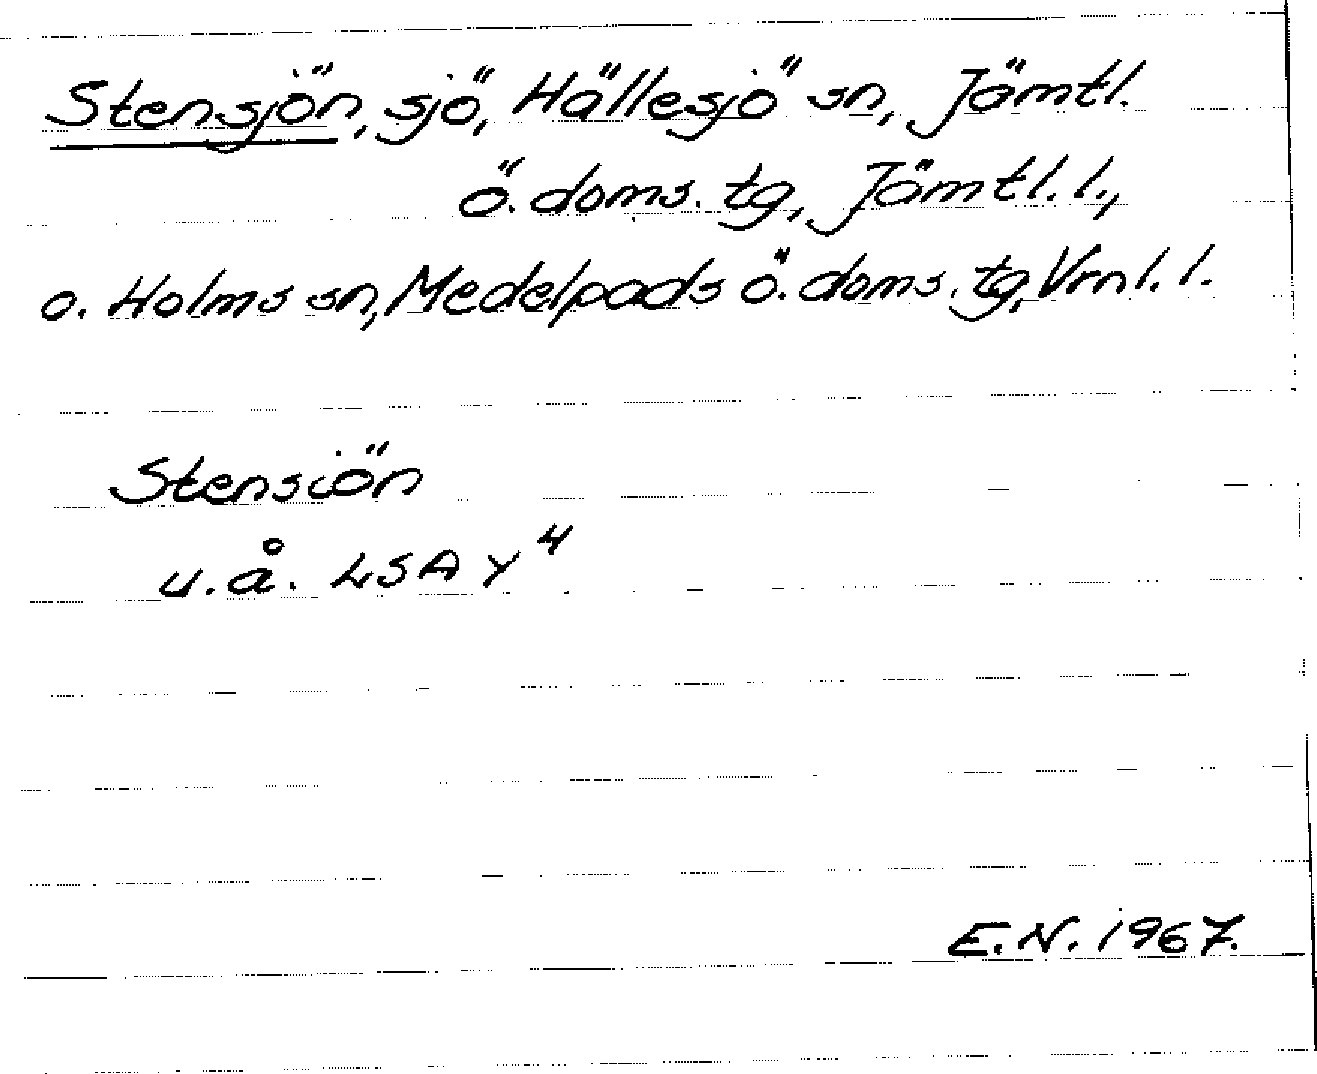 Stensjön, sjö, Hällesjö sn, Jämtl.
ö. doms. tg, Jämtl. l.,
o. Holms sn, Medelpads ö. doms. tg, Vrnl. l.
Stensiön
u.å. LSA Y⁴
E.N. 1967.